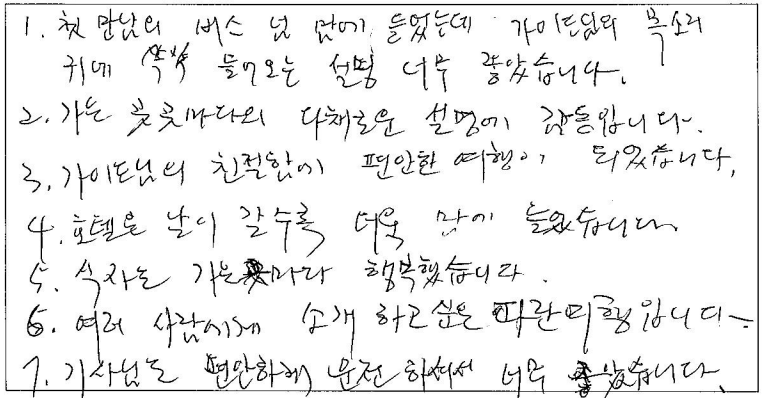 1. 첫 만남의 버스 넘 맘에 들었는데 가이드님의 목소리
귀에 쏙쏙 들어오는 설명 너무 좋았습니다.
2. 가는 곳곳마다의 다채로운 설명에 감동입니다.
3. 가이드님의 친절함에 편안한 여행이 되었습니다.
4. 호텔은 날이 갈수록 더욱 맘에 들었습니다.
5. 식사는 가는 곳마다 행복했습니다.
6. 여러 사람에게 소개 하고 싶은 여행입니다.
7. 기사님도 편안하게 운전 하셔서 너무 좋았습니다.